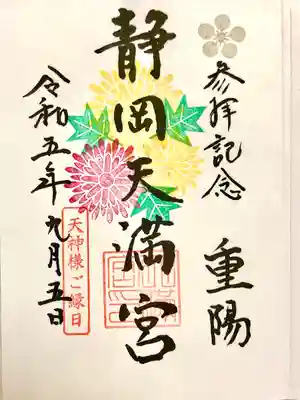 参拝記念
重陽
静岡天満宮
令和五年 九月五日
天神様ご縁日